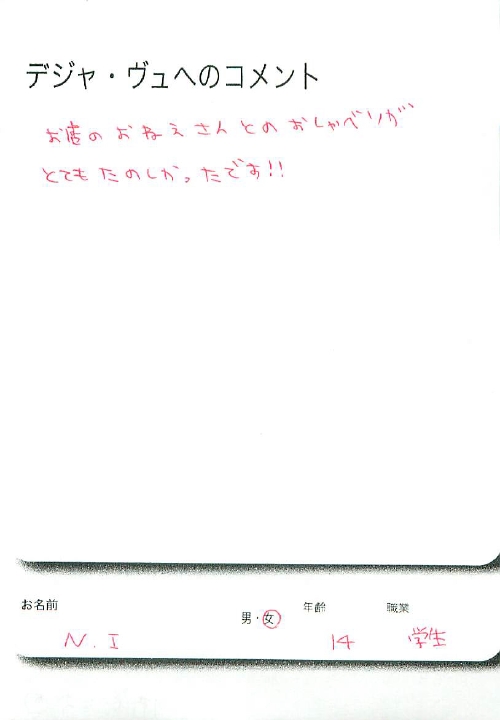 デジャ・ヴュへのコメント
お店のおねえさんとのおしゃべりが
とてもたのしかったです!!
お名前 男・女 年齢 職業
N.I 14 学生